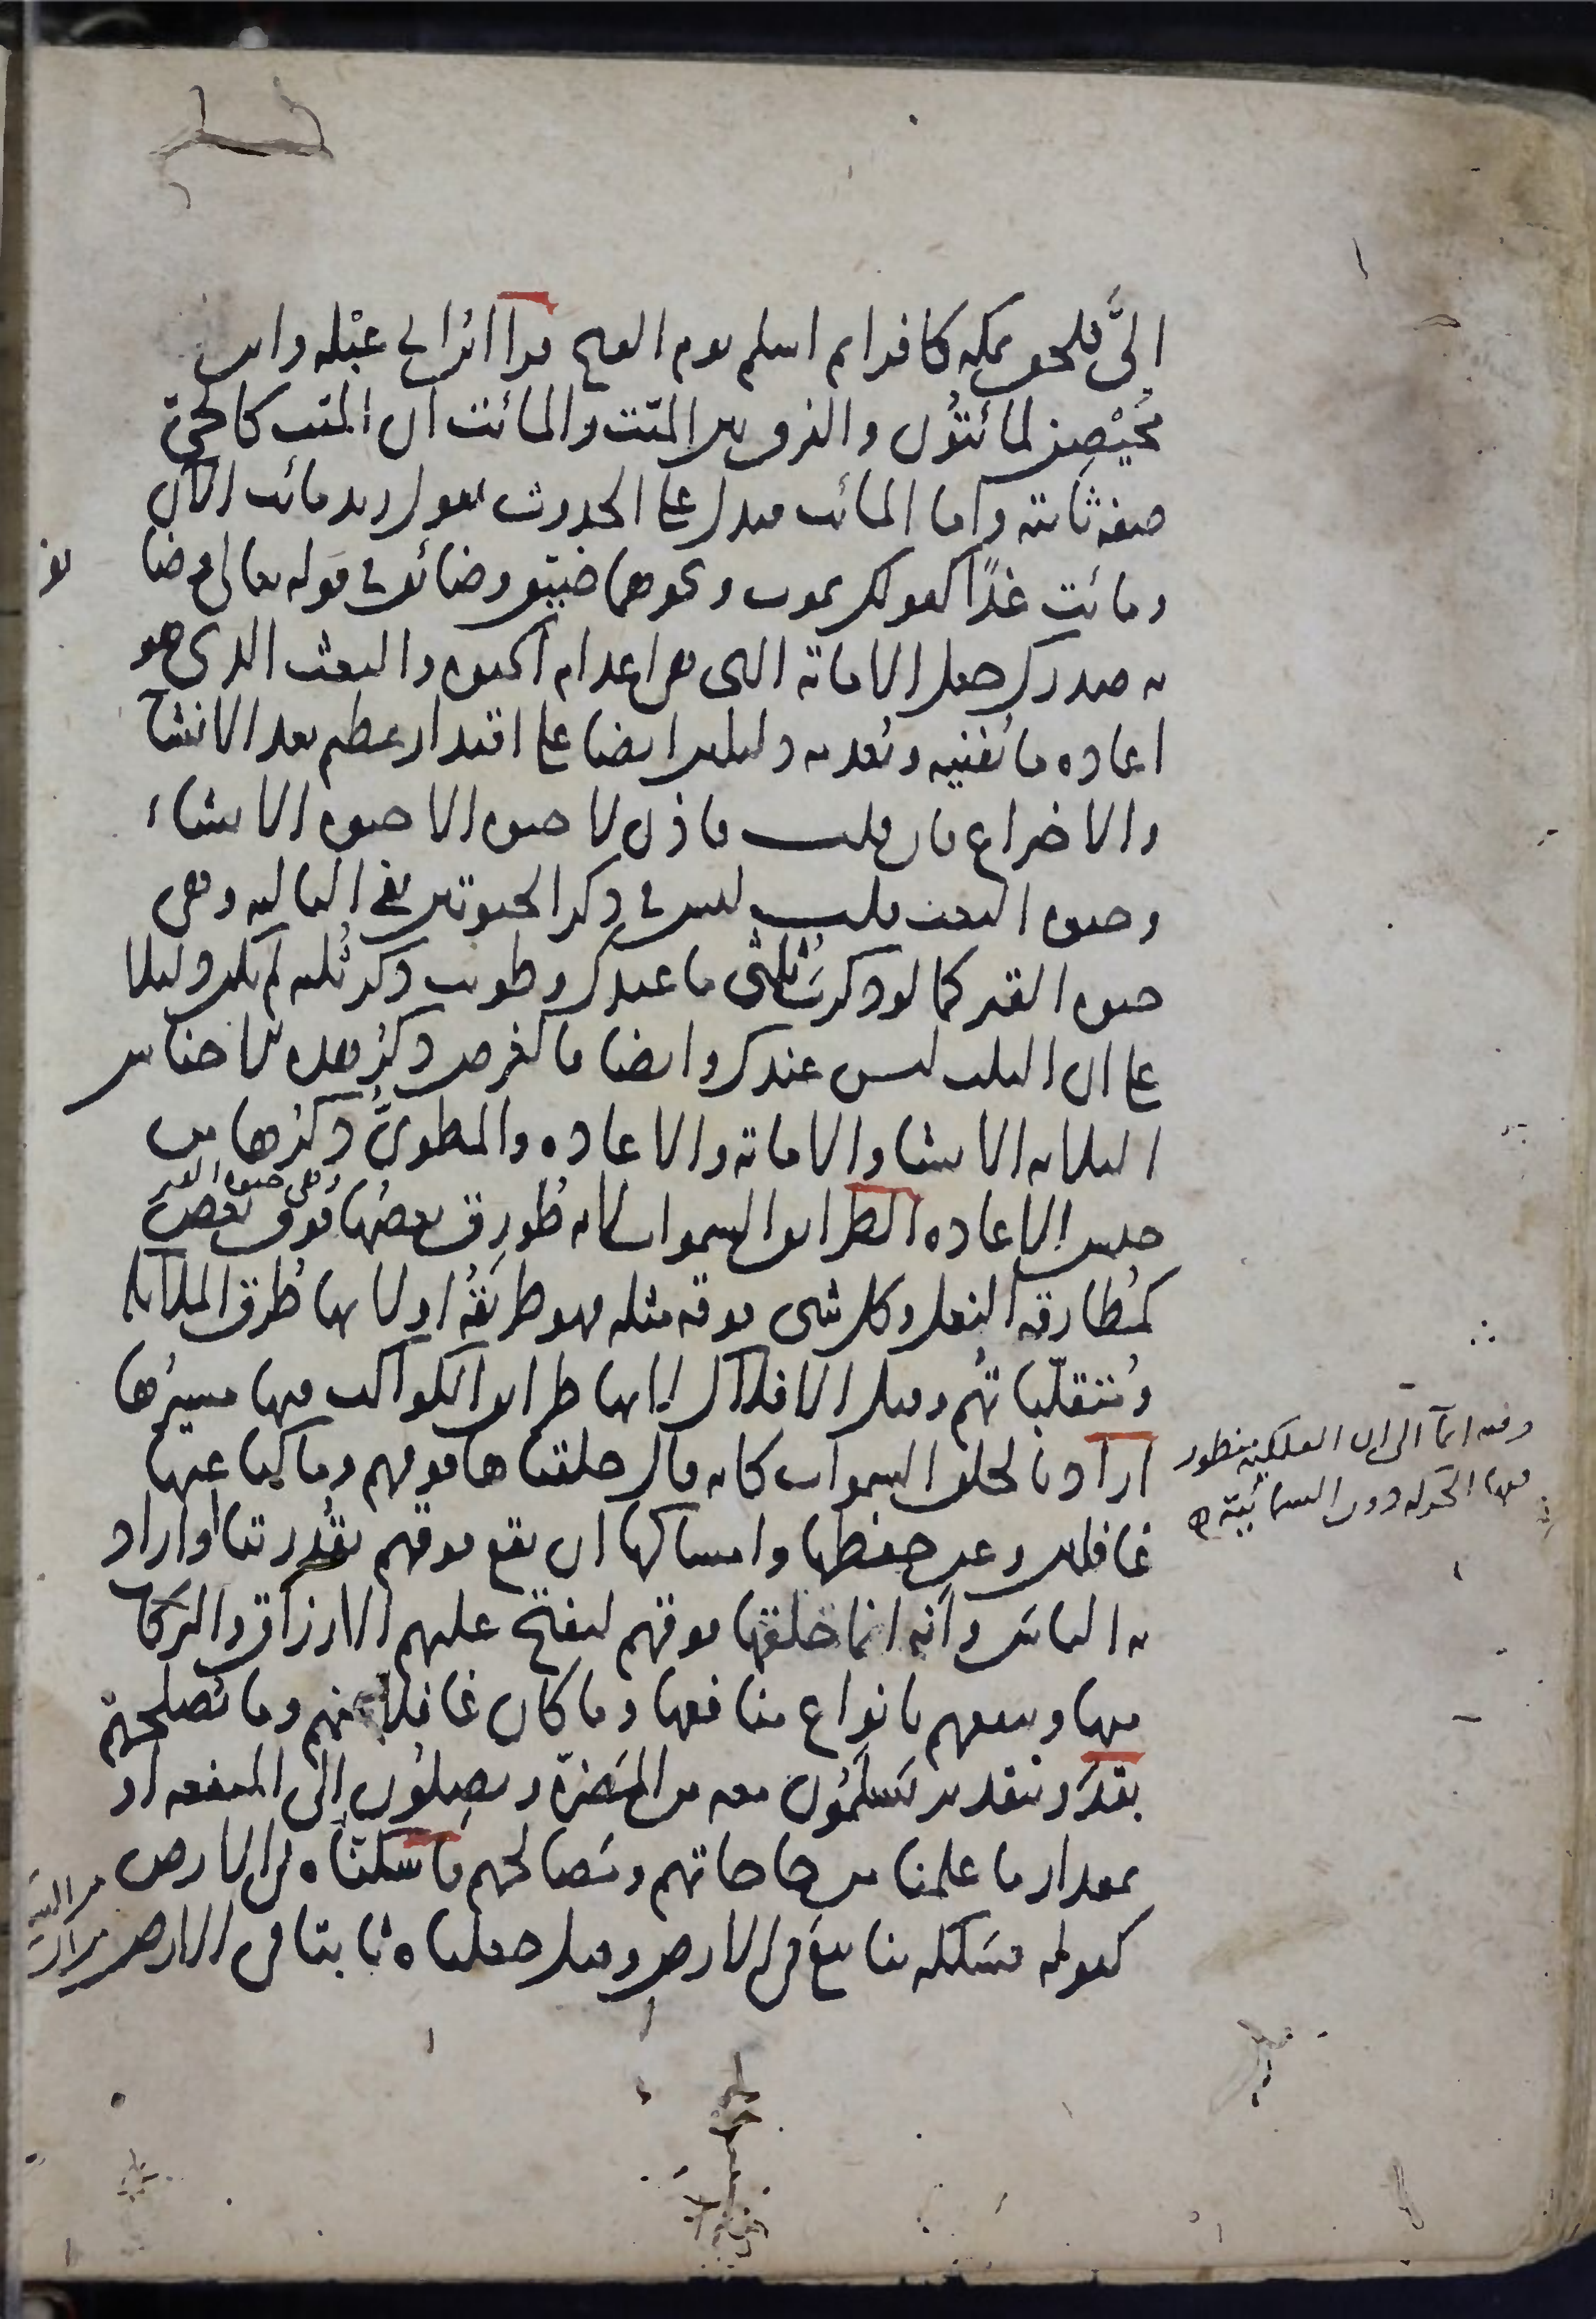 اليَّ فلحق بمكه كافرا ثم اسلم يوم الفتح قرا ابن ابي عبْله وابن
مُحَيْصِن لمائتُون والفرق بين الميّت والمائت ان الميت كالحيّ
صفه ثابته واما المائت فيدل على الحدوث تقول زيد مائت الآن
ومائت غدًا كقولك يموت ونحوهما ضيّق وضائق في قوله تعالى وضا
ئق
به صدرك جعل الاماته التي هي اعدام الحيوه والبعث الذي هو
اعاده ما يُفنيه ويُعدمه دليلين ايضا على اقتدار عظيم بعد الانشآ
والاختراع فان قلت فاذن لا حيوه الا حيوه الانشاء
وحيوه البعث قلت ليس في ذكر الحيوتين نفي الثالثه وهي
حيوه القبر كما لو ذكرتَ ثُلثي ما عندك وطويت ذكر ثُلثه لم يكن دليلا
على ان الثلث ليس عندك وايضا فالغرض ذكرُ هذه الاجناس
الثلاثه الانشا والاماته والاعاده والمطويُّ ذكرُها من
وهي حيوه القبر
جنس الاعاده الطرايق السموات لانه طُورِق بعضُها فوق بعض
كمُطارقه النعل وكل شي فوقه مثله فهو طريقةُ او لانها طُرق الملآئكه
ومُتقلّباتُهم وقيل الافلاك لانها طرايق الكواكب فيها مسيرُها
اراد بالخلق السموات كانه قال خلقناها فوقهم وما كنا عنها
وفيه ايمآ الى ان الفلكيه منظور
فيها الحركه دون السمائيّة
غافلين وعن حفظها وامساكها ان تقع فوقهم بقُدرتنا او اراد
به الناس وانّه انما خلقها فوقهم ليفتح عليهم الارزاق والبركات
منها وينفعهم بانواع منافعها وما كان غافلا عنهم وما يُصلحهم
بقدَر بتقدير يَسلَمُون معه من المضرّة ويصِلُون الى المنفعه او
بمقدار ما علمنا من حاجاتهم ومَصالحهم فاسكنّاه في الارض
كقوله فسَلَكه ينابيعَ في الارض وقيل جعلناه ثابتا في الارض